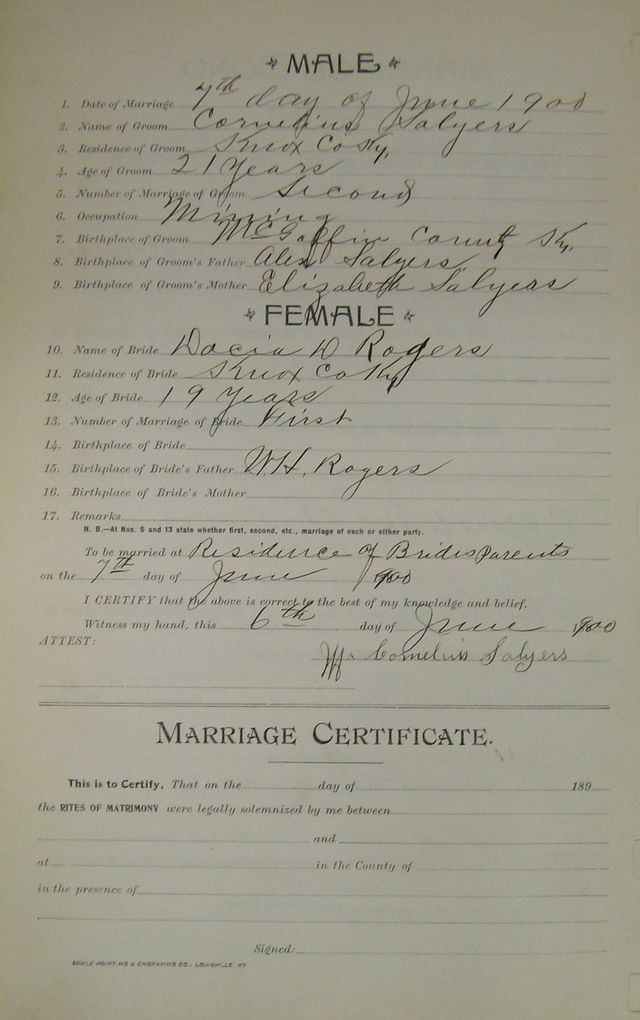 MALE
1. Date of Marriage 7th day of June 1900
2. Name of Groom Cornelius Salyers
3. Residence of Groom Knox Co Ky.
4. Age of Groom 21 Years
5. Number of Marriage of Groom Second
6. Occupation Mining
7. Birthplace of Groom McGoffin County Ky.
8. Birthplace of Groom's Father Alex Salyers
9. Birthplace of Groom's Mother Elizabeth Salyers
FEMALE
10. Name of Bride Docia D Rogers
11. Residence of Bride Knox Co Ky
12. Age of Bride 19 Years
13. Number of Marriage of Bride First
14. Birthplace of Bride
15. Birthplace of Bride's Father W.H. Rogers
16. Birthplace of Bride's Mother
17. Remarks
N. B.—At Nos. 5 and 13 state whether first, second, etc., marriage of each or either party.
To be married at Residence of Brides Parents
on the 7th day of June 1900
I CERTIFY that the above is correct to the best of my knowledge and belief.
Witness my hand, this 6th day of June 1900
ATTEST:
Cornelius Salyers
MARRIAGE CERTIFICATE.
This is to Certify, That on the day of 189
the RITES OF MATRIMONY were legally solemnized by me between
and
at in the County of
in the presence of
Signed:
PRINTING & ENGRAVING CO., LOUISVILLE, KY